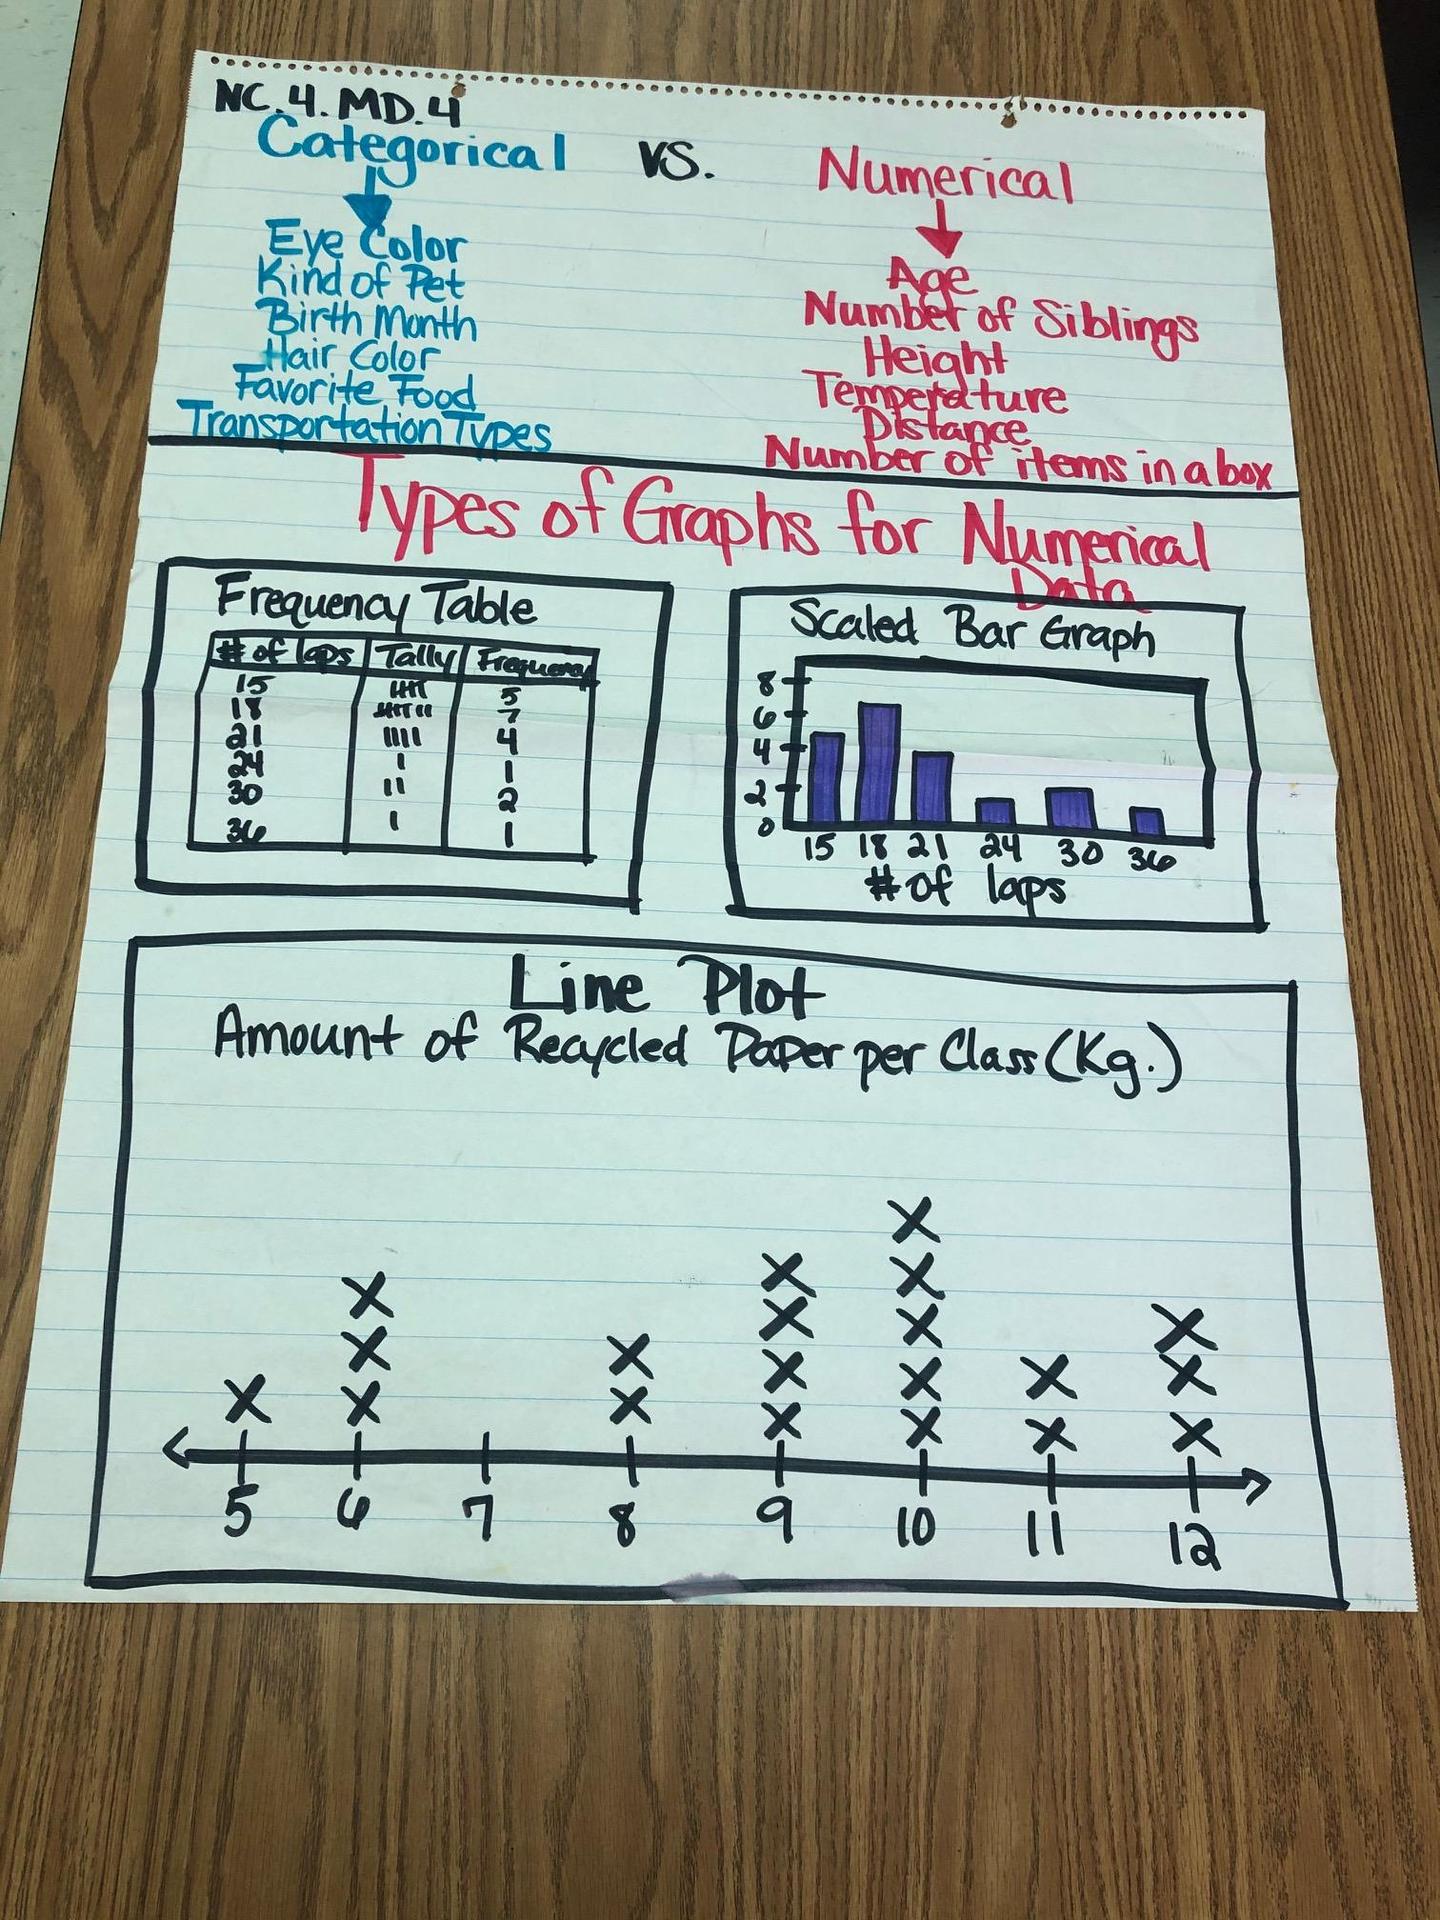 NC.4.MD.4
Categorical vs. Numerical
Eye Color
Kind of Pet
Birth Month
Hair Color
Favorite Food
Transportation Types
Age
Number of Siblings
Height
Temperature
Distance
Number of items in a box
Types of Graphs for Numerical
Data
Frequency Table
# of laps Tally Frequency
15 5
18 7
21 4
24 1
30 2
36 1
Scaled Bar Graph
8
6
4
2
0
15 18 21 24 30 36
# of laps
Line Plot
Amount of Recycled Paper per Class (Kg.)
5 6 7 8 9 10 11 12